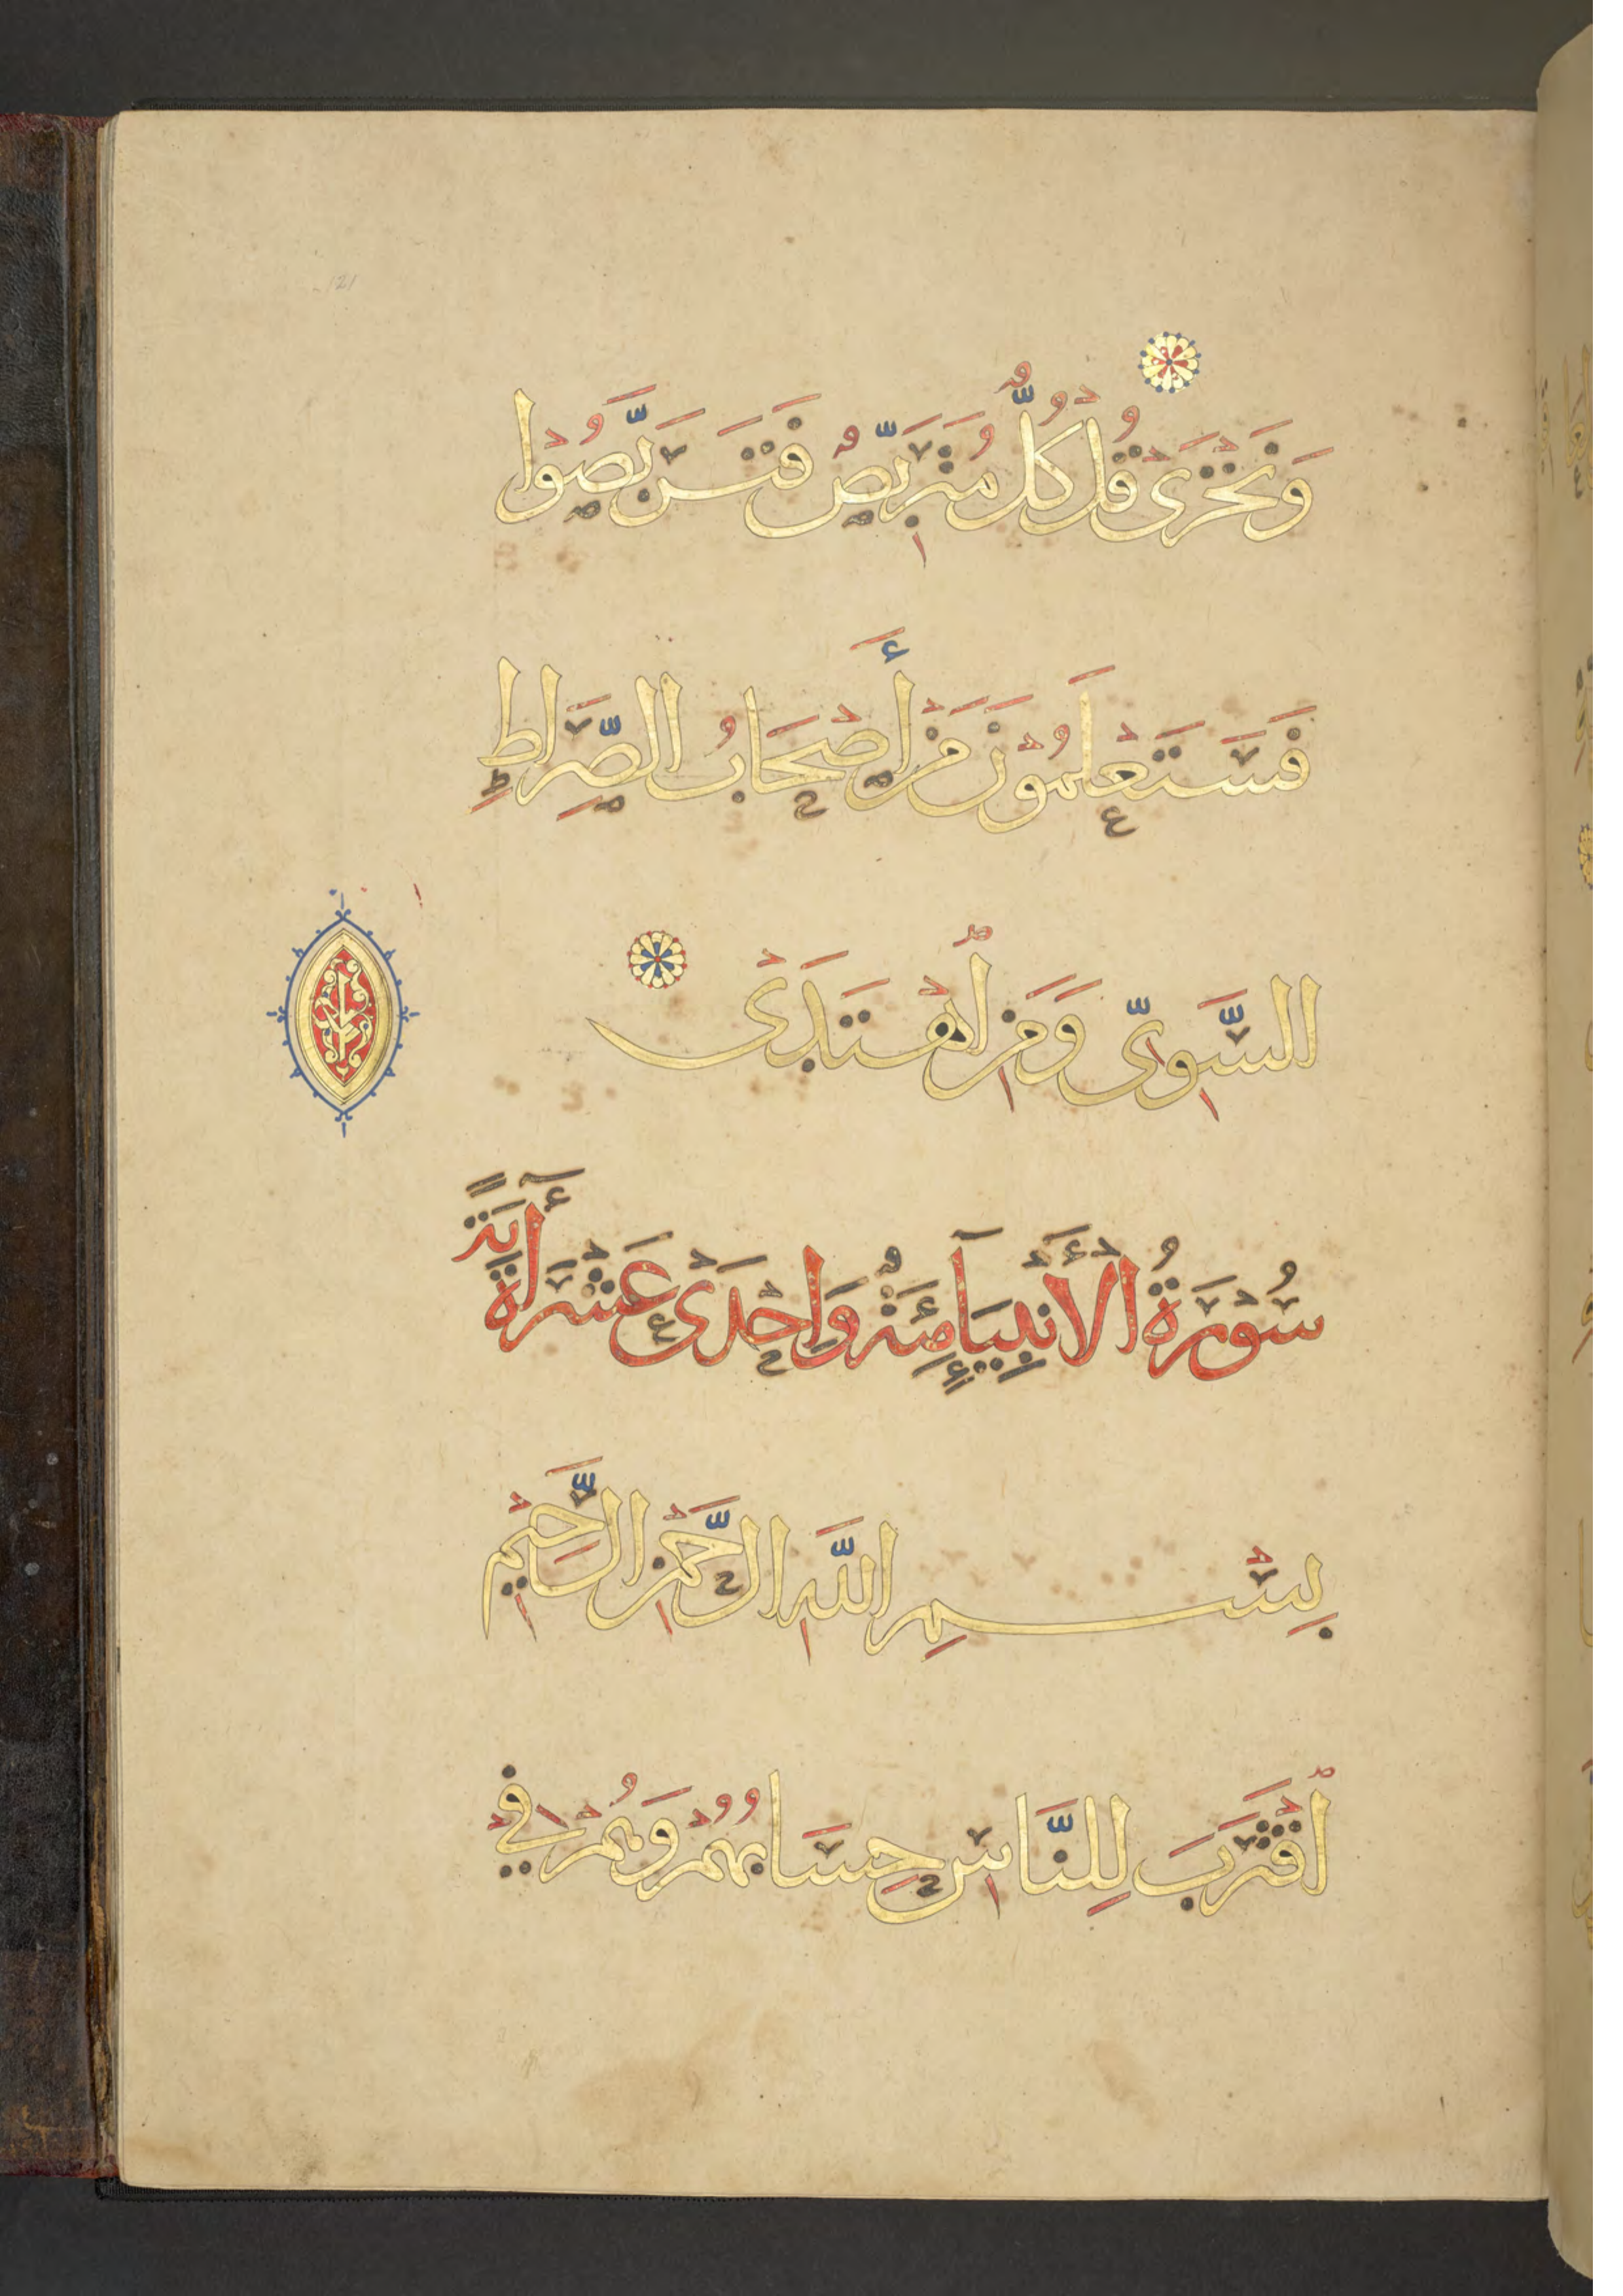 وَنَخْزَىٰ قُلْ كُلٌّ مُتَرَبِّصٌ فَتَرَبَّصُوا
فَسَتَعْلَمُونَ مَنْ أَصْحَابُ الصِّرَاطِ
السَّوِيِّ وَمَنِ اهْتَدَى
سُورَةُ الْأَنْبِيَآءِ مِئَةٌ وَاحِدَى عَشْرَةَ آيَةً
بِسْمِ اللَّهِ الرَّحْمَنِ الرَّحِيمِ
اقْتَرَبَ لِلنَّاسِ حِسَابُهُمْ وَهُمْ فِي
121